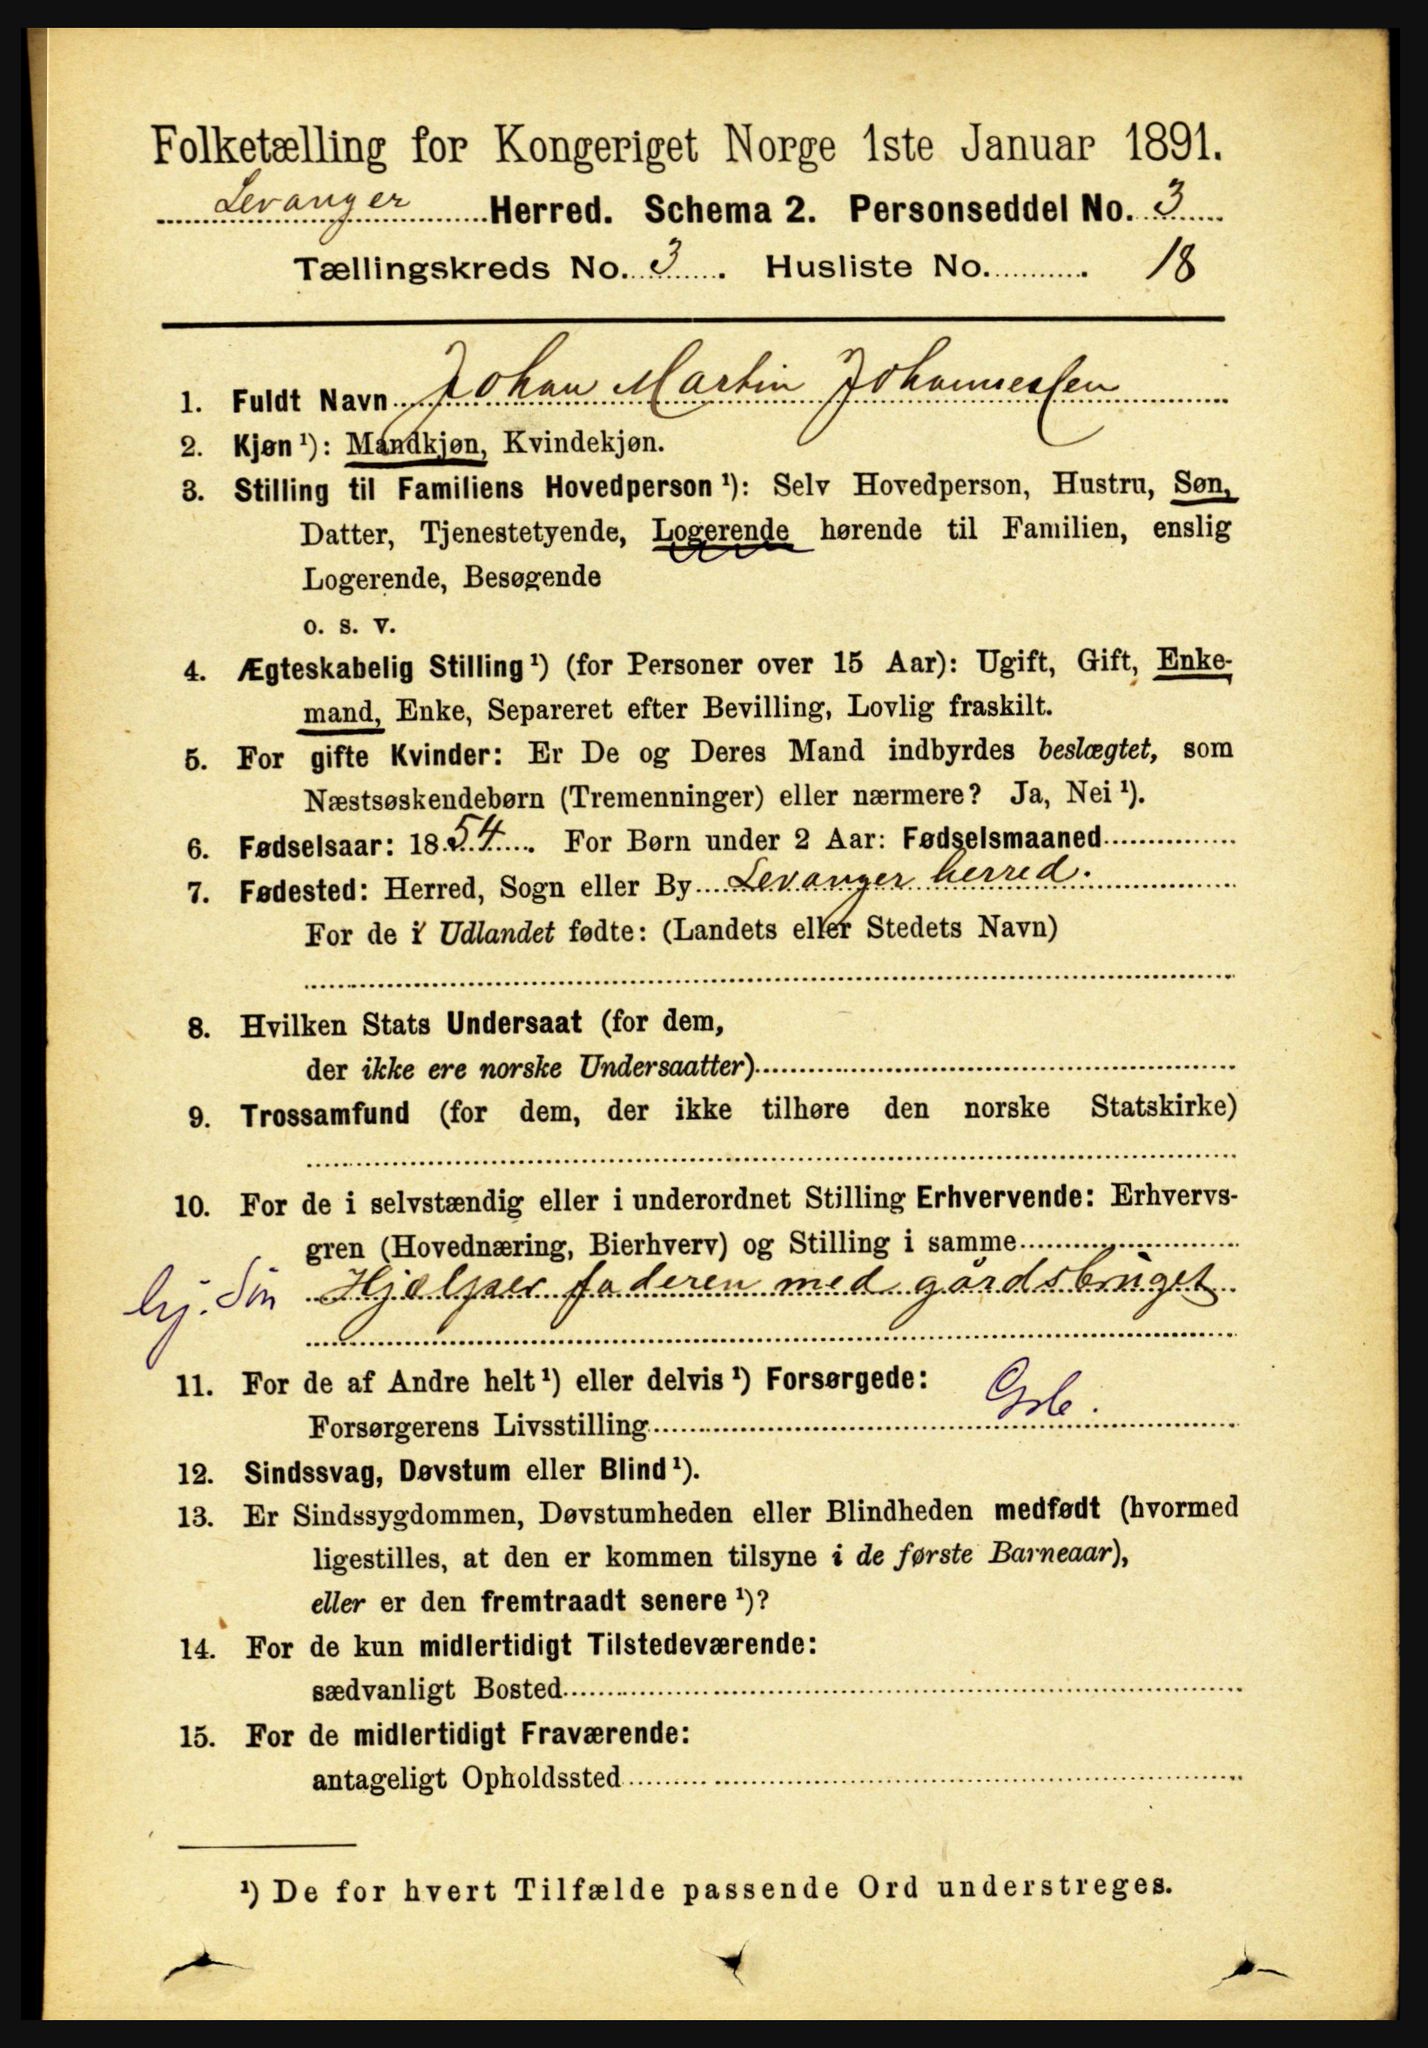 Folketælling for Kongeriget Norge 1ste Januar 1891.
Levanger Herred. Schema 2. Personseddel No. 3
Tællingskreds No. 3. Husliste No. 18
1. Fuldt Navn Johan Martin Johannessen
2. Kjøn ¹): Mandkjøn, Kvindekjøn.
3. Stilling til Familiens Hovedperson ¹): Selv Hovedperson, Hustru, Søn,
Datter, Tjenestetyende, Logerende hørende til Familien, enslig
Logerende, Besøgende
o. s. v.
4. Ægteskabelig Stilling ¹) (for Personer over 15 Aar): Ugift, Gift, Enke-
mand, Enke, Separeret efter Bevilling, Lovlig fraskilt.
5. For gifte Kvinder: Er De og Deres Mand indbyrdes beslægtet, som
Næstsøskendebørn (Tremenninger) eller nærmere? Ja, Nei ¹).
6. Fødselsaar: 1854. For Børn under 2 Aar: Fødselsmaaned
7. Fødested: Herred, Sogn eller By Levanger herred.
For de i Udlandet fødte: (Landets eller Stedets Navn)
8. Hvilken Stats Undersaat (for dem,
der ikke ere norske Undersaatter)
9. Trossamfund (for dem, der ikke tilhøre den norske Statskirke)
10. For de i selvstændig eller i underordnet Stilling Erhvervende: Erhvervs-
gren (Hovednæring, Bierhverv) og Stilling i samme
hj. Søn Hjælper faderen med gårdsbruget
11. For de af Andre helt ¹) eller delvis ¹) Forsørgede:
Forsørgerens Livsstilling
12. Sindssvag, Døvstum eller Blind ¹).
13. Er Sindssygdommen, Døvstumheden eller Blindheden medfødt (hvormed
ligestilles, at den er kommen tilsyne i de første Barneaar),
eller er den fremtraadt senere ¹)?
14. For de kun midlertidigt Tilstedeværende:
sædvanligt Bosted
15. For de midlertidigt Fraværende:
antageligt Opholdssted
¹) De for hvert Tilfælde passende Ord understreges.